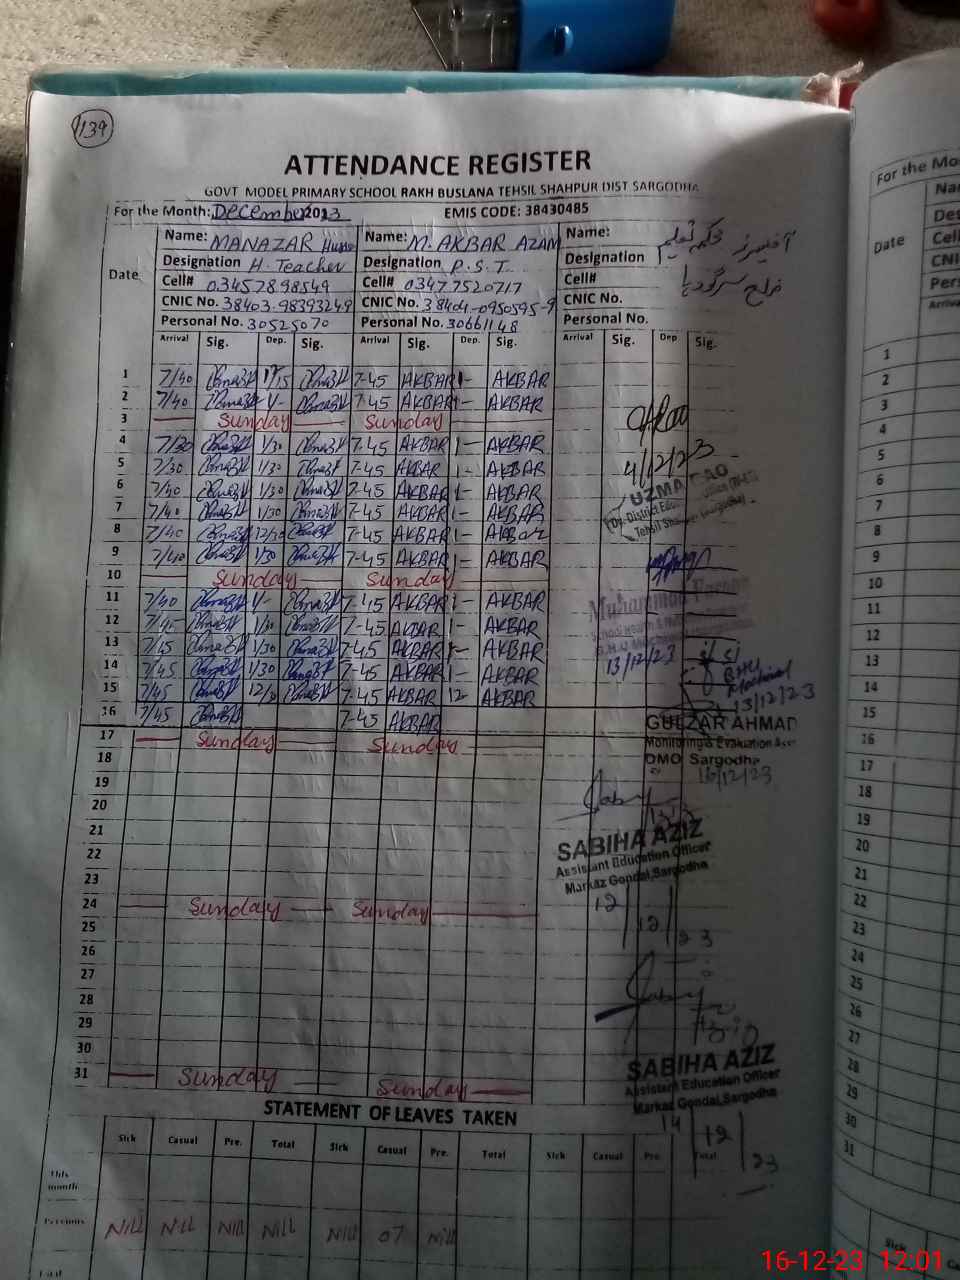 139
ATTENDANCE REGISTER
GOVT MODEL PRIMARY SCHOOL RAKH BUSLANA TEHSIL SHAHPUR DIST SARGODHA
For the Month: December 2023 EMIS CODE: 38430485
Name: MANAZAR Name: M. AKBAR AZAM Name:
Designation H. Teacher Designation P.S.T Designation
Cell# 03457898549 Cell# 03477520717 Cell#
CNIC No. 38403-98393249 CNIC No. 38404-0950595-9 CNIC No.
Personal No. 30525070 Personal No. 30661148 Personal No.
Date Arrival Sig. Dep. Sig. Arrival Sig. Dep. Sig. Arrival Sig. Dep Sig.
1 7/40 7-45 AKBAR 1- AKBAR
2 7/40 1/- 7-45 AKBAR 1- AKBAR
3 Sunday Sunday
4 7/30 1/30 7-45 AKBAR 1- AKBAR
4/12/23
5 7/30 1/30 7-45 AKBAR 1- AKBAR
6 7/40 1/30 7-45 AKBAR 1- AKBAR
UZMA
7 7/40 1/30 7-45 AKBAR 1- AKBAR
8 7/40 7-45 AKBAR 1- AKBAR
9 7/40 1/30 7-45 AKBAR 1- AKBAR
10 Sunday Sunday
11 7/40 1/- 7-45 AKBAR 1- AKBAR
Muhammad
12 7/45 1/30 7-45 AKBAR 1- AKBAR
13 7/45 1/30 7-45 AKBAR 1- AKBAR
13/12/23
14 7/45 1/30 7-45 AKBAR 1- AKBAR
15 7/45 7-45 AKBAR 12- AKBAR
13/12/23
16 7/45 7-45 AKBAR
GULZAR AHMAD
17 Sunday Sunday
Monitoring & Evaluation
18
DMO Sargodha
16/12/23
19
20
21
SABIHA AZIZ
22
Assistant Education Officer
23
Markaz Gondal, Sargodha
24 Sunday Sunday
12/12/23
25
26
27
28
29
30
31 Sunday Sunday
SABIHA AZIZ
Assistant Education Officer
Markaz Gondal, Sargodha
14/12/23
STATEMENT OF LEAVES TAKEN
Sick Casual Pre. Total Sick Casual Pre. Total Sick Casual Pre Total
This month
Previous Nill Nill Nill Nill Nill 07 Nill
Total
For the Mo
Date
Arrival
1
2
3
4
5
6
7
8
9
10
11
12
13
14
15
16
17
18
19
20
21
22
23
24
25
26
27
28
29
30
31
Sick
16-12-23 12:01